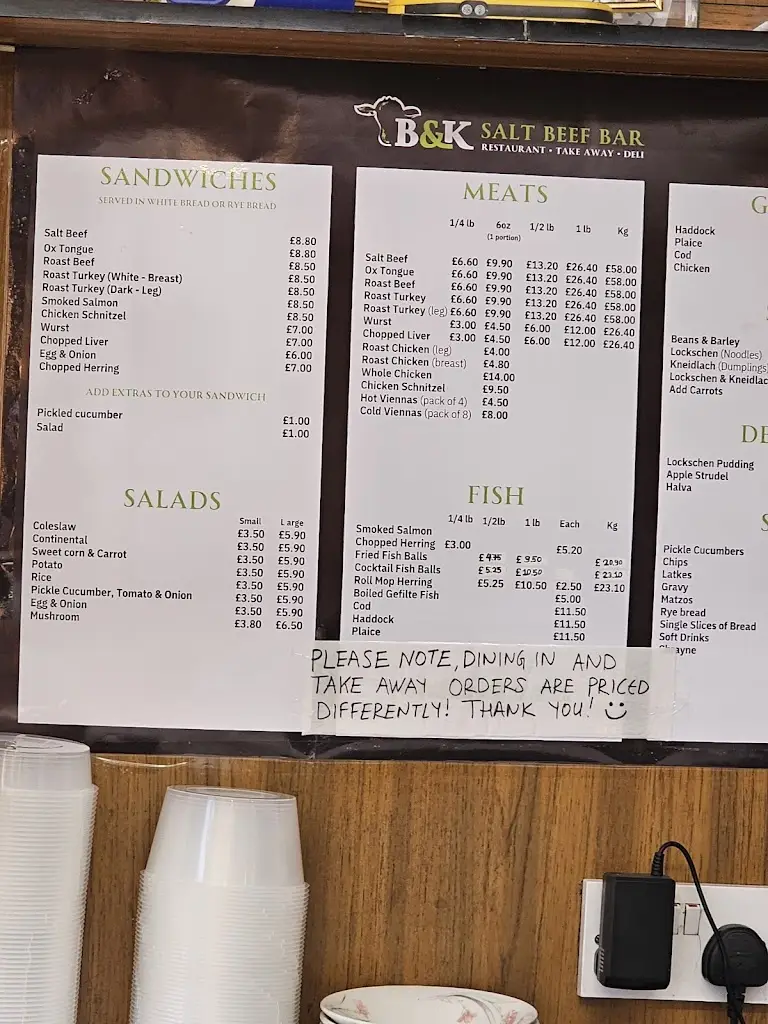 B&K SALT BEEF BAR
RESTAURANT • TAKE AWAY • DELI
SANDWICHES
SERVED IN WHITE BREAD OR RYE BREAD
Salt Beef £8.80
Ox Tongue £8.80
Roast Beef £8.50
Roast Turkey (White - Breast) £8.50
Roast Turkey (Dark - Leg) £8.50
Smoked Salmon £8.50
Chicken Schnitzel £8.50
Wurst £7.00
Chopped Liver £7.00
Egg & Onion £6.00
Chopped Herring £7.00
ADD EXTRAS TO YOUR SANDWICH
Pickled cucumber £1.00
Salad £1.00
SALADS
Small Large
Coleslaw £3.50 £5.90
Continental £3.50 £5.90
Sweet corn & Carrot £3.50 £5.90
Potato £3.50 £5.90
Rice £3.50 £5.90
Pickle Cucumber, Tomato & Onion £3.50 £5.90
Egg & Onion £3.50 £5.90
Mushroom £3.80 £6.50
MEATS
1/4 lb 6oz 1/2 lb 1 lb Kg
(1 portion)
Salt Beef £6.60 £9.90 £13.20 £26.40 £58.00
Ox Tongue £6.60 £9.90 £13.20 £26.40 £58.00
Roast Beef £6.60 £9.90 £13.20 £26.40 £58.00
Roast Turkey £6.60 £9.90 £13.20 £26.40 £58.00
Roast Turkey (leg) £6.60 £9.90 £13.20 £26.40 £58.00
Wurst £3.00 £4.50 £6.00 £12.00 £26.40
Chopped Liver £3.00 £4.50 £6.00 £12.00 £26.40
Roast Chicken (leg) £4.00
Roast Chicken (breast) £4.80
Whole Chicken £14.00
Chicken Schnitzel £9.50
Hot Viennas (pack of 4) £4.50
Cold Viennas (pack of 8) £8.00
FISH
1/4 lb 1/2lb 1 lb Each Kg
Smoked Salmon
Chopped Herring £3.00 £5.20
Fried Fish Balls £4.75 £9.50 £20.90
Cocktail Fish Balls £5.25 £10.50 £23.10
Roll Mop Herring £5.25 £10.50 £2.50 £23.10
Boiled Gefilte Fish £5.00
Cod £11.50
Haddock £11.50
Plaice £11.50
G
Haddock
Plaice
Cod
Chicken
Beans & Barley
Lockschen (Noodles)
Kneidlach (Dumplings)
Lockschen & Kneidlac
Add Carrots
DE
Lockschen Pudding
Apple Strudel
Halva
S
Pickle Cucumbers
Chips
Latkes
Gravy
Matzos
Rye bread
Single Slices of Bread
Soft Drinks
PLEASE NOTE, DINING IN AND
TAKE AWAY ORDERS ARE PRICED
DIFFERENTLY! THANK YOU!